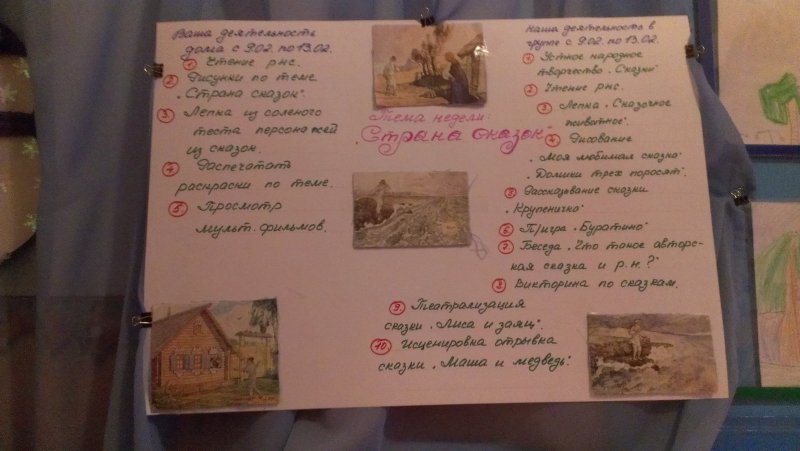 Ваша деятельность
дома с 9.02. по 13.02.
1 Чтение рнс.
2 Рисунки по теме
„Страна сказок".
3 Лепка из соленого
теста персонажей
из сказок.
4 Распечатать
раскраски по теме.
5 Просмотр
мульт. фильмов.
Тема недели:
„Страна сказок"
Наша деятельность в
группе с 9.02. по 13.02.
1 Устное народное
творчество „Сказки"
2 Чтение рнс.
3 Лепка „Сказочное
животное".
4 Рисование
„Моя любимая сказка"
„Домики трех поросят".
5 Рассказывание сказки
„Крупеничка"
6 П/игра „Буратино"
7 Беседа „Что такое автор-
ская сказка и р.н.?"
8 Викторина по сказкам.
9 Театрализация
сказки „Лиса и заяц".
10 Инсценировка отрывка
сказки „Маша и медведь".